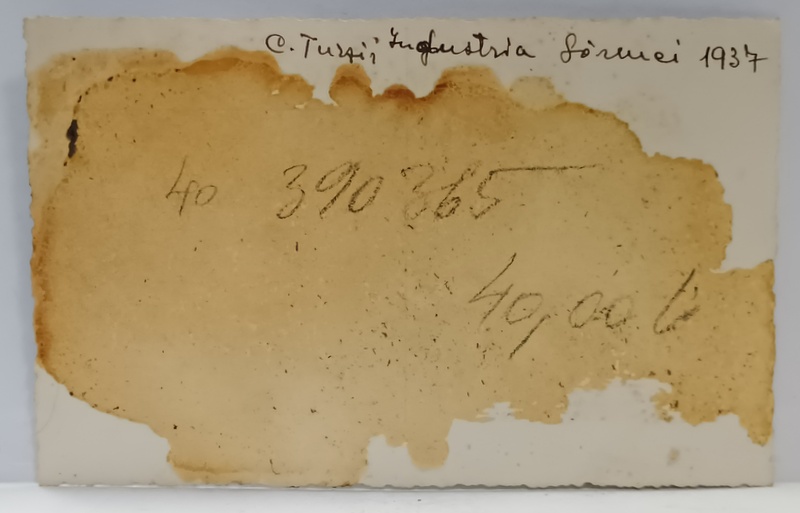 C. Turzii Industria Sârmei 1937
40 390 365
40,00 L